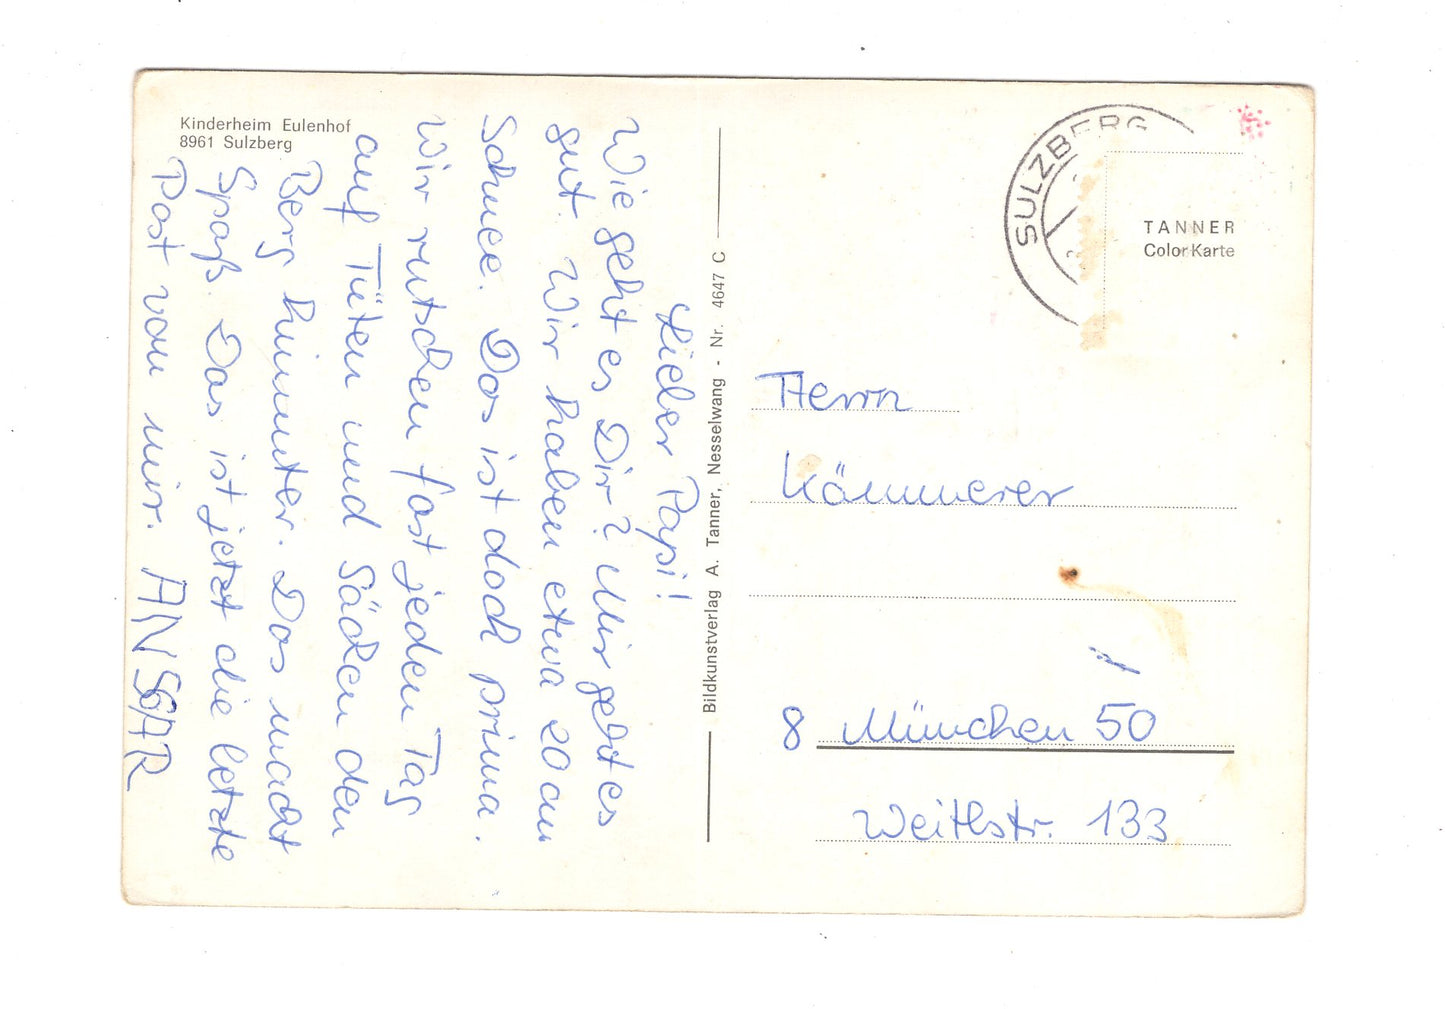 Kinderheim Eulenhof
8961 Sulzberg
Lieber Papi!
Wie geht es Dir? Mir geht es
gut. Wir haben etwa 20 cm
Schnee. Das ist doch prima.
Wir rutschen fast jeden Tag
auf Tüten und Säcken den
Berg hinunter. Das macht
Spaß. Das ist jetzt die letzte
Post von mir. ANSGAR
Bildkunstverlag A. Tanner, Nesselwang - Nr. 4647 C
SULZBERG
TANNER
Color-Karte
Herrn
Kämmerer
8 München 50
Weitlstr. 133